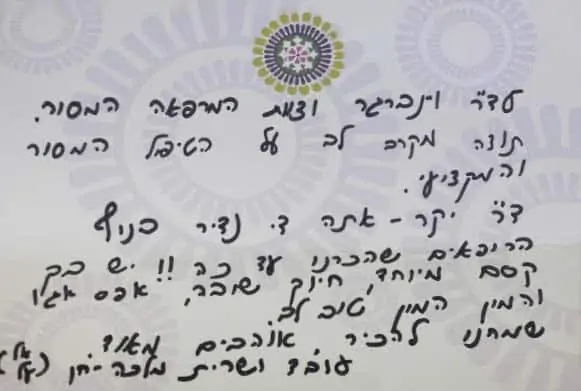 לד"ר וינברגר וצוות המרפאה המסור.
תודה מקרב לב על הטיפול המסור
והמקצועי.
ד"ר יקר - אתה ד. נדיר בנוף
הרופאים שהכרנו עד כה!! יש בך
קסם מיוחד, חיוך שובה, אפס אגו
והמון המון טוב לב.
שמחנו להכיר, אוהבים מאוד.
עובד ושרית מלכה-חן